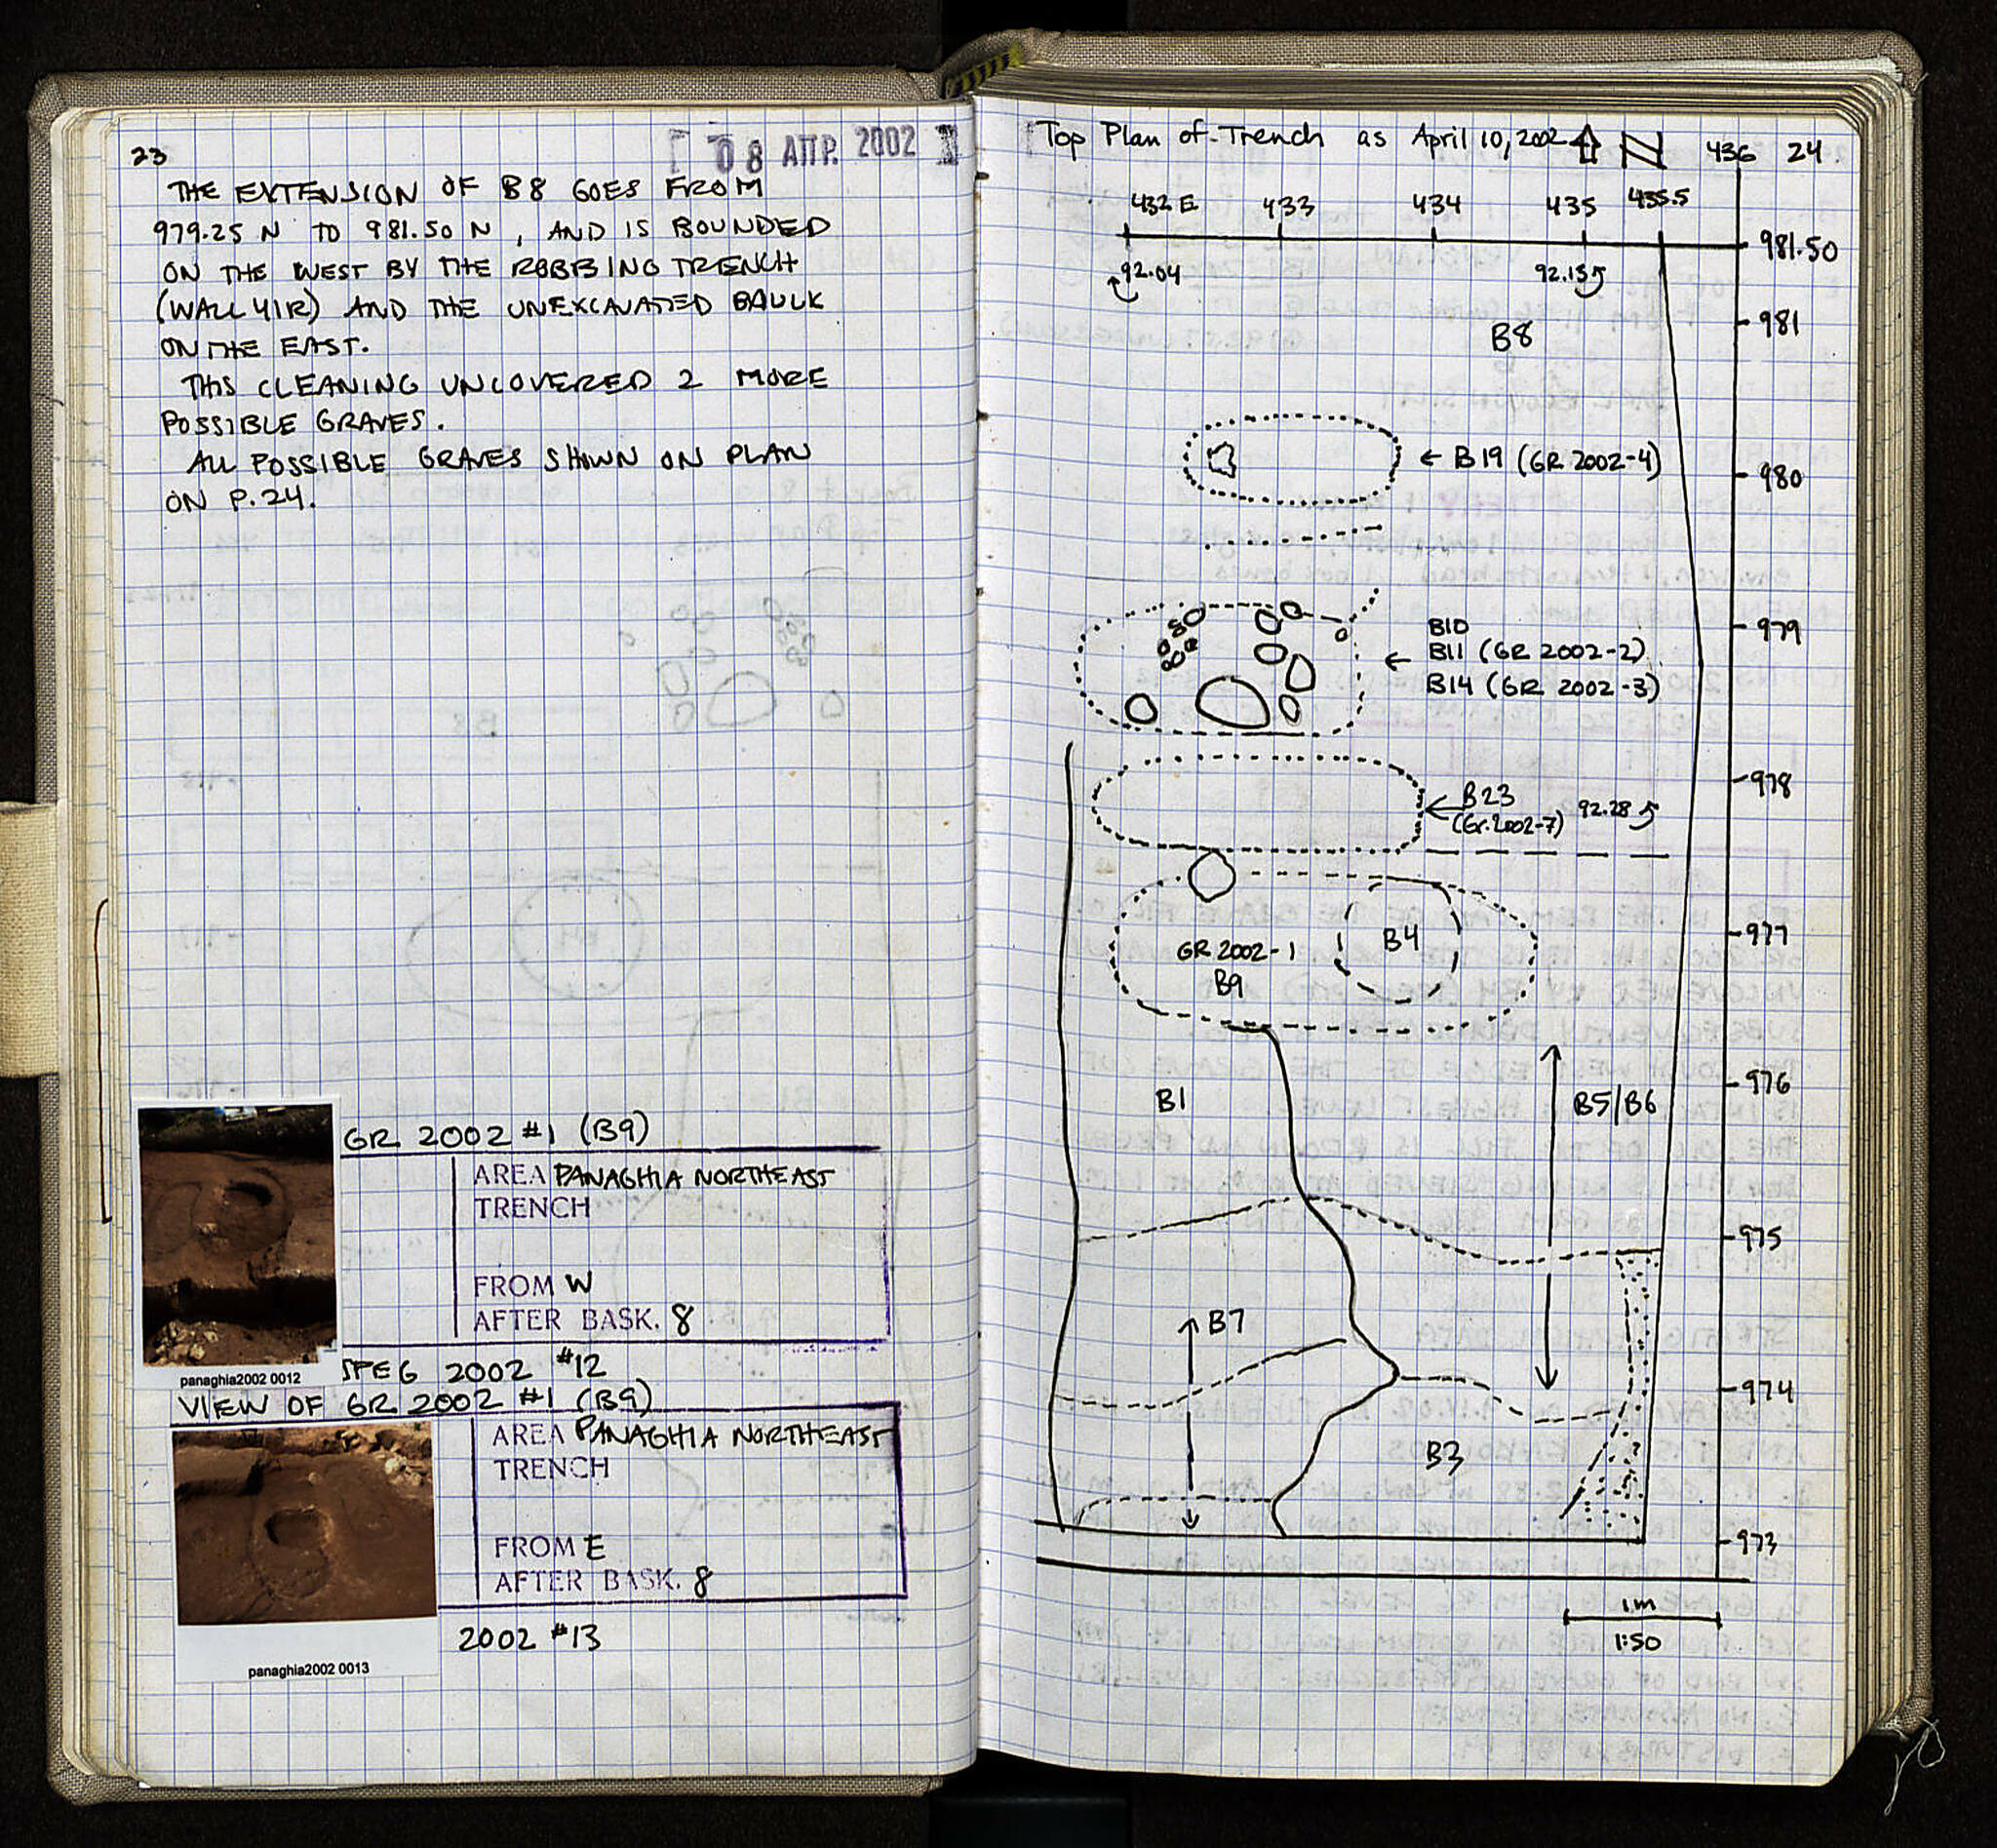 23
08 ΑΠΡ. 2002
THE EXTENSION OF B8 GOES FROM
979.25 N TO 981.50 N, AND IS BOUNDED
ON THE WEST BY THE ROBBING TRENCH
(WALL 41R) AND THE UNEXCAVATED BAULK
ON THE EAST.
THIS CLEANING UNCOVERED 2 MORE
POSSIBLE GRAVES.
ALL POSSIBLE GRAVES SHOWN ON PLAN
ON P.24.
GR 2002 #1 (B9)
AREA PANAGHIA NORTHEAST
TRENCH
FROM W
AFTER BASK. 8
panaghia2002 0012
2002 #12
VIEW OF GR 2002 #1 (B9)
AREA PANAGHIA NORTHEAST
TRENCH
FROM E
AFTER BASK. 8
2002 #13
panaghia2002 0013
Top Plan of Trench as April 10, 2002 N
24
432 E 433 434 435 435.5 436
981.50
92.04 92.13
981
B8
B19 (GR 2002-4)
980
979
B10
B11 (GR 2002-2)
B14 (GR 2002-3)
978
B23
(Gr. 2002-7)
92.28
977
GR 2002-1
B9
B4
976
B1
B5/B6
975
B7
974
B3
973
1m
1:50